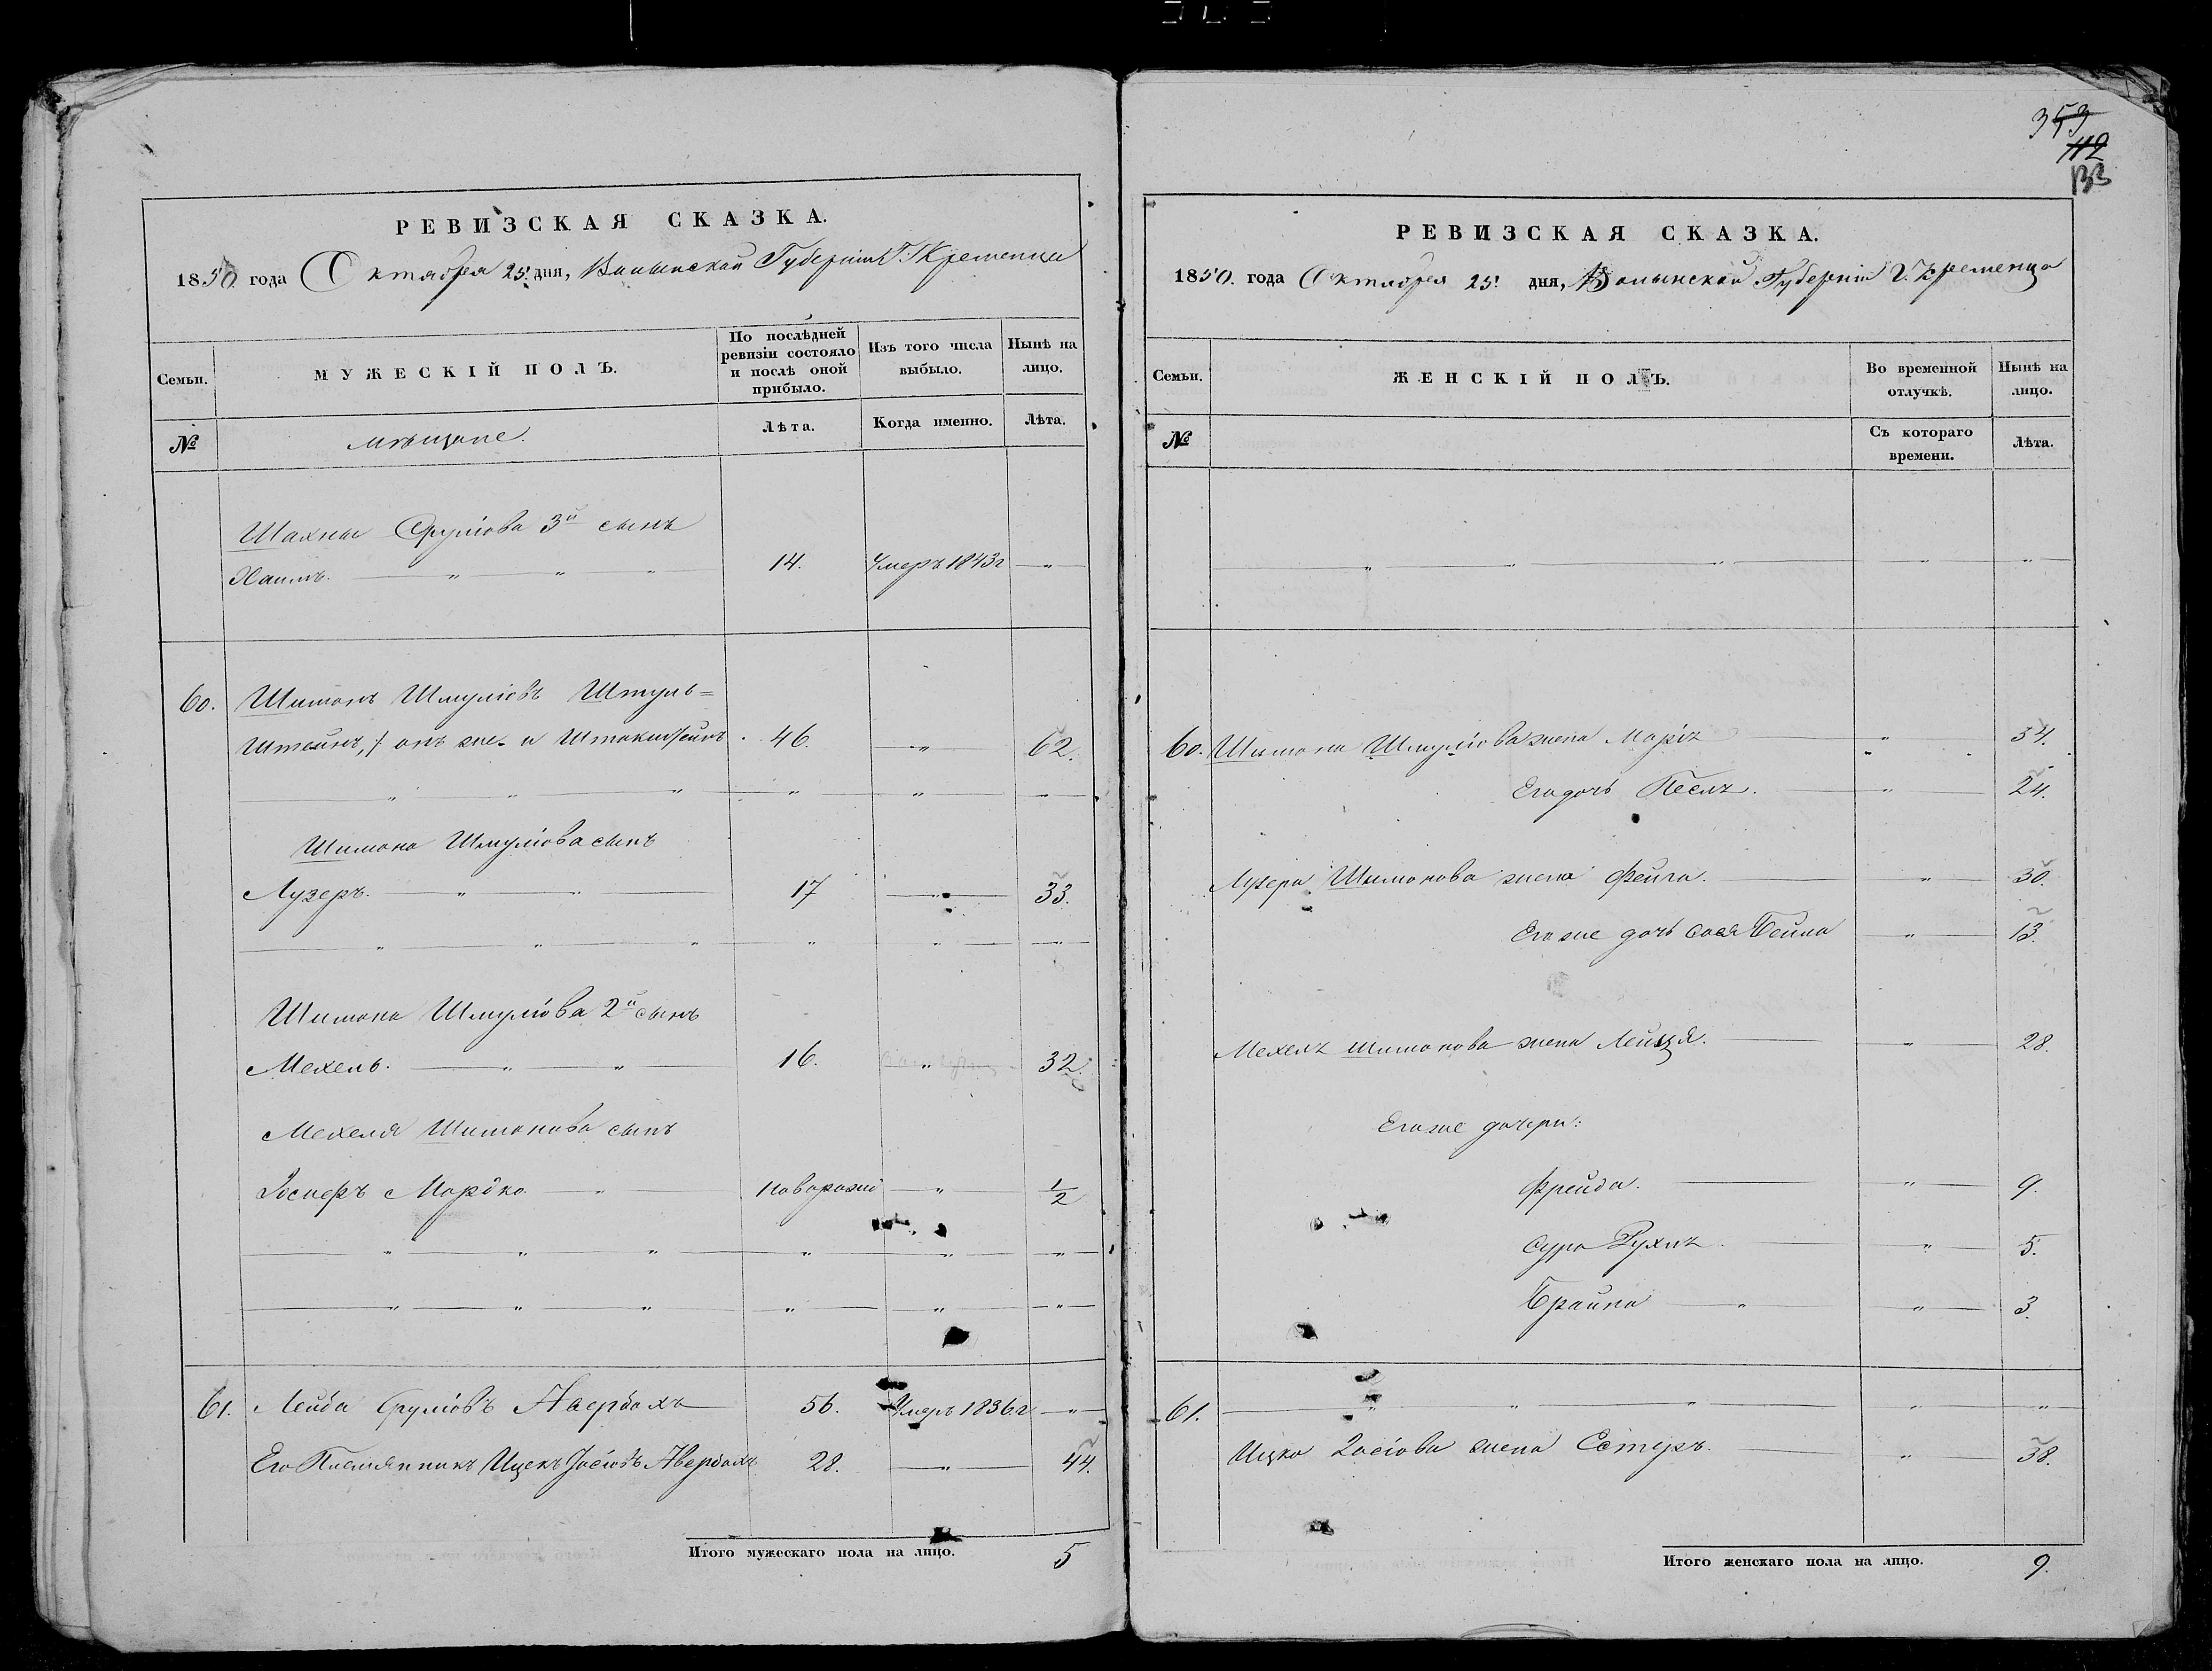 РЕВИЗСКАЯ СКАЗКА.
1850 года Октября 25: дня, Волынской Губерніи Г. Кременца
Семьи.
МУЖЕСКІЙ ПОЛЪ.
По послѣдней ревизіи состояло и послѣ оной прибыло.
Изъ того числа выбыло.
Нынѣ на лицо.
№
мѣщане.
Лѣта.
Когда именно.
Лѣта.
Шахны Сруліова 3й сынъ
Хаимъ. 14. Умеръ 1843г
60. Шимонъ Шмуліовъ Штуль=
Штейнъ, онъ же и Штокштейнъ. 46. 62.
Шимона Шмуліова сынъ
Лузеръ. 17 33.
Шимона Шмуліова 2й сынъ
Мехель. 16. 32.
Мехеля Шимонова сынъ
Іосперъ Мордко. новорожд 1/2
61. Лейба Сруліовъ Авербахъ 56. Умеръ 1836г
Его Племянникъ Ицекъ Іосіовъ Авербахъ 28. 44.
Итого мужескаго пола на лицо. 5
353
112
133
РЕВИЗСКАЯ СКАЗКА.
1850. года Октября 25! дня, Волынской Губерніи Г. Кременца
Семьи.
ЖЕНСКІЙ ПОЛЪ.
Во временной отлучкѣ.
Нынѣ на лицо.
№
Съ котораго времени.
Лѣта.
60. Шимона Шмуліова жена Марія 54.
Его дочь Песля. 24.
Лузера Шимонова жена Фейга. 30.
Его же дочь Сося Бейла 13.
Мехеля Шимонова жена Лейця. 28.
Его же дочери:
Фрейда. 9.
Сура Рухля. 5.
Брайна 3.
61.
Ицка Іосіова жена Естеръ. 38.
Итого женскаго пола на лицо. 9.